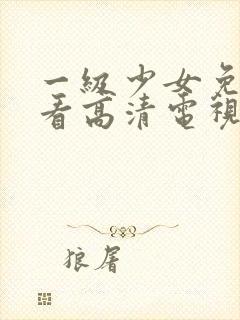 一級少女免
看高清電視
狼屠